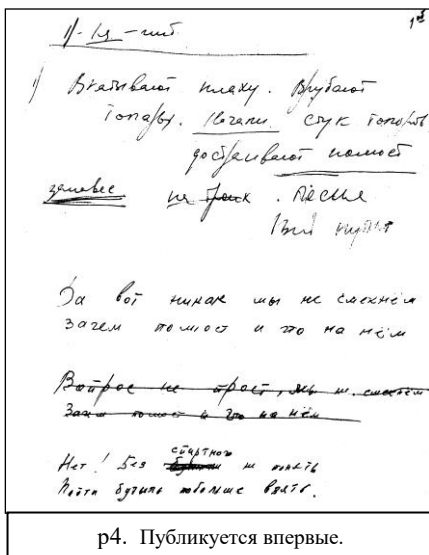 1)
Вкатывают плаху. Врубают
топоры. Начали стук топоров
достраивают помост
занавес на . Песня
Да вот никак мы не смекнём
Зачем помост и что на нём
Вопрос не прост, мы не смекнём
Зачем помост и что на нём
спиртного
Нет! Без не понять
Пойти бутыль побольше взять.
p4. Публикуется впервые.